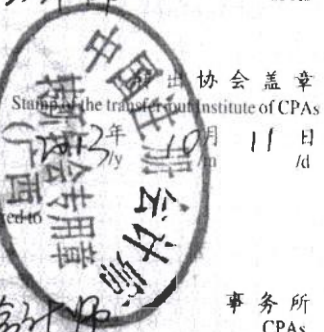 出协会盖章
Stamp of the transfer-out Institute of CPAs
2013年 10月 11日
/y /m /d
中国注册会计师
协会专用章
(广西)
事务所
CPAs